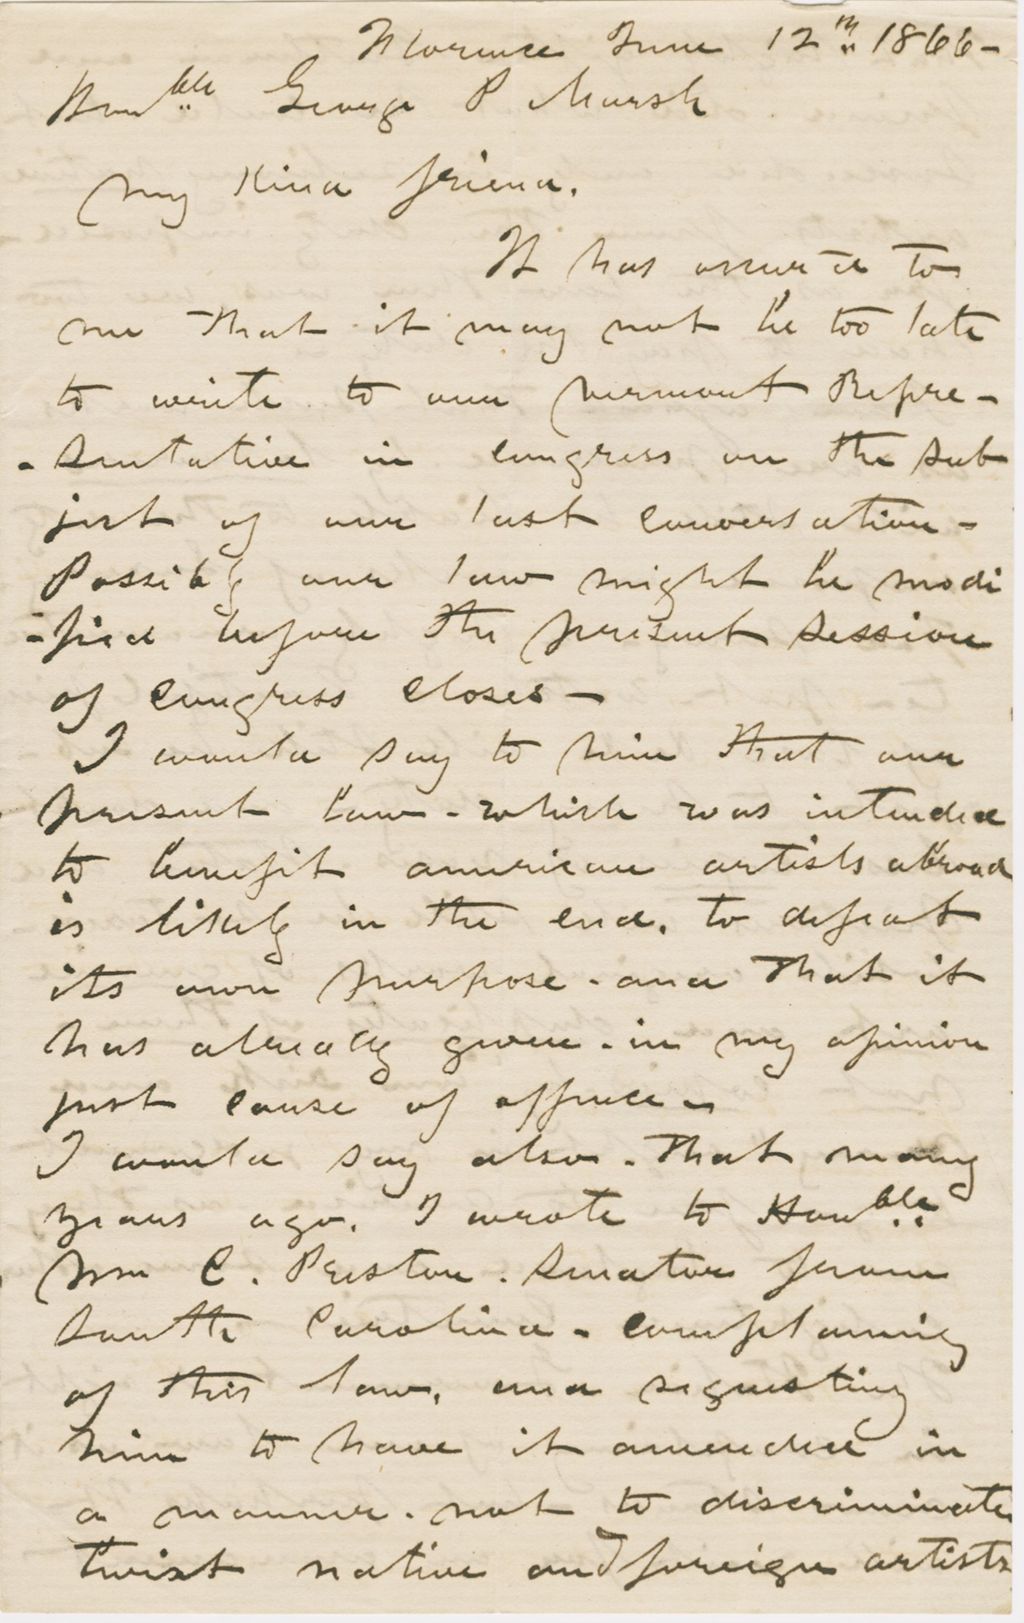 Florence June 12th 1866-
Honble George P Marsh
My Kind friend.
It has occurred to
me that it may not be too late
to write to our Vermont Repre-
-sentative in Congress on the sub
ject of our last conversation-
Possibly our law might be modi
-fied before the present session
of Congress closes-
I would say to him that our
present law-which was intended
to benefit american artists abroad
is likely in the end, to defeat
its own purpose-and that it
has already given-in my opinion
just cause of offence-
I would say also-that many
years ago, I wrote to Honble
Wm C. Preston. Senator from
South Carolina-complaining
of this law, and requesting
him to have it amended in
a manner-not to discriminate
twixt native and foreign artists